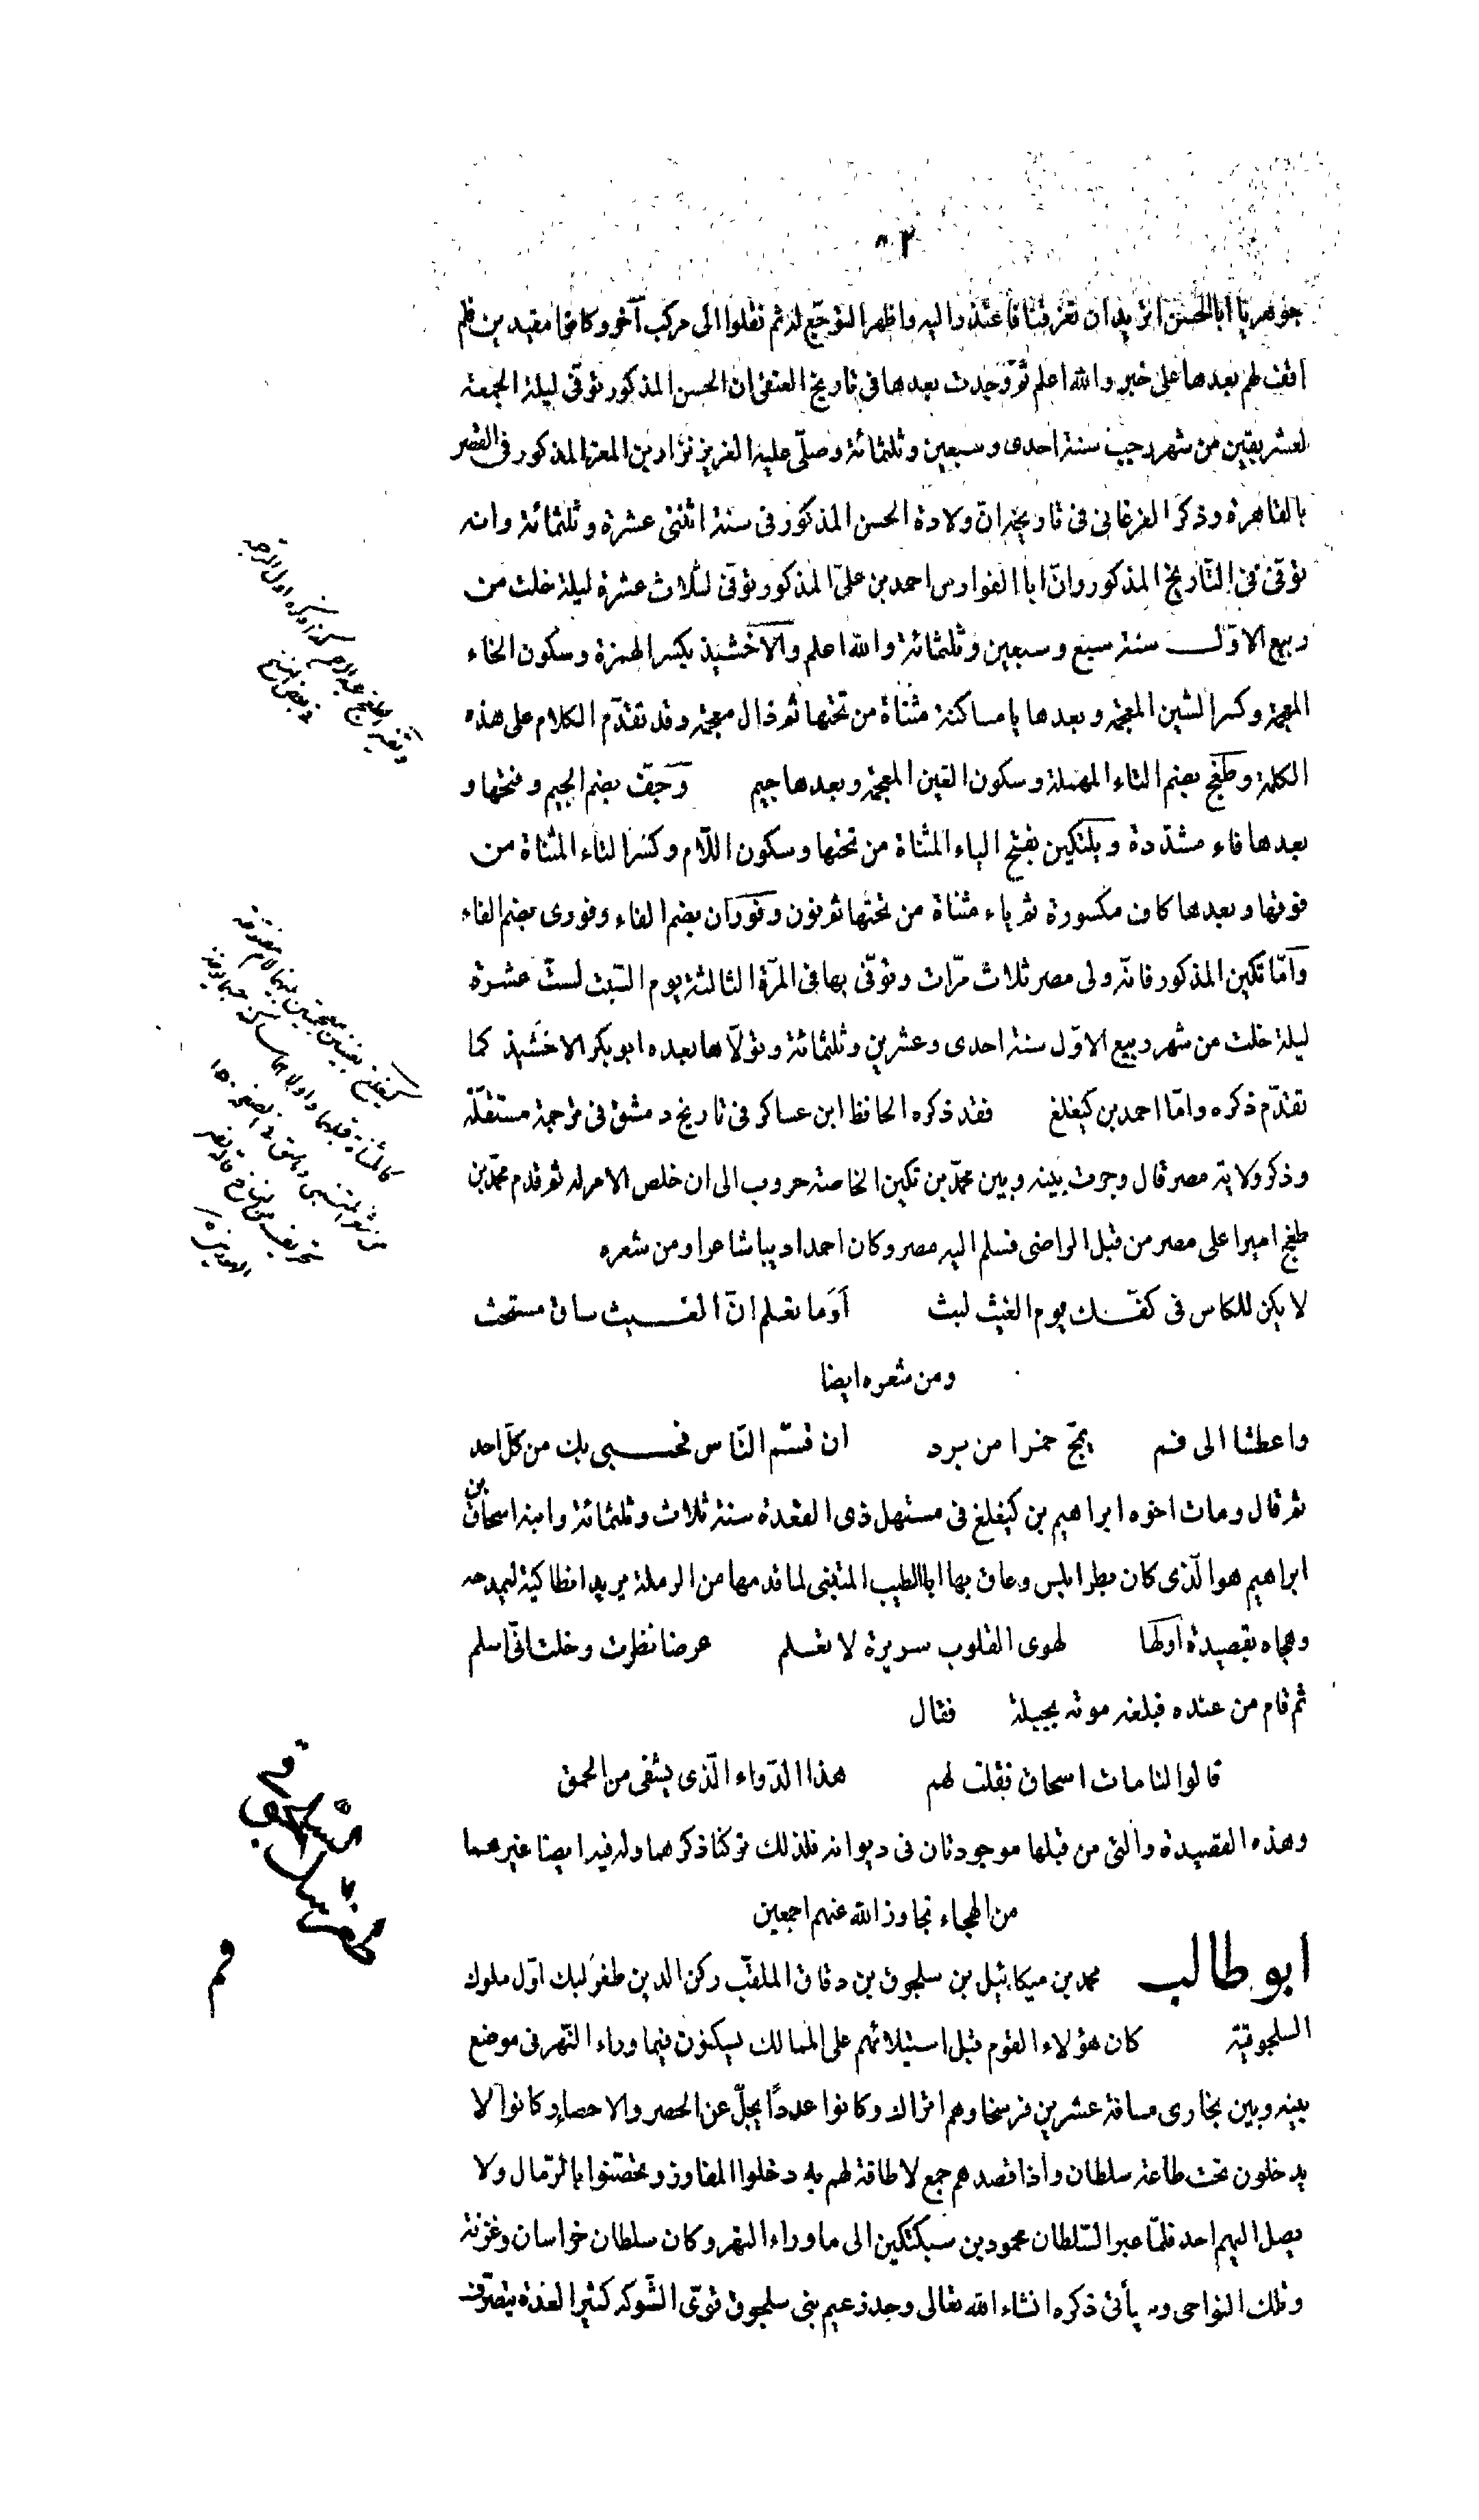 جوهريا ابا الحسن اتريد ان تغرقنا فاعتذر اليه واظهر التوجّع له ثم نقلوا الى مركب آخر وكانوا مقيدين فلم
اقف لهم بعدها على خبر والله اعلم ثم وجدت بعدها فى تاريخ العتقى ان الحسن المذكور توفّى ليلة الجمعة
لعشر بقين من شهر رجب سنة احدى وسبعين وثلثمائة وصلّى عليه العزيز نزار بن المعز المذكور فى القصر
بالقاهرة وذكر الفرغانى فى تاريخه انّ ولادة الحسن المذكور فى سنة اثنتى عشرة وثلثمائة وانه
توفّى فى التّاريخ المذكور وانّ ابا الفوارس احمد بن علىّ المذكور توفّى لثلاث عشرة ليلة خلت من
ربيع الاوّل سنة سبع وسبعين وثلثمائة والله اعلم والاخشيذ بكسر الهمزة وسكون الخاء
المعجمة وكسر الشين المعجمة وبعدها يا ساكنة مثناة من تحتها ثم ذال معجمة وقد تقدّم الكلام على هذه
الكلمة وطغج بضم الطاء المهملة وسكون الغين المعجمة وبعدها جيم وجفّ بضم الجيم وفتحها و
بعدها فاء مشدّدة ويلتكين بفتح الياء المثناة من تحتها وسكون اللّام وكسر التاء المثناة من
فوقها وبعدها كاف مكسورة ثم ياء مثناة من تحتها ثم نون وفوران بضم الفاء وفورى بضم الفاء
وامّا تكين المذكور فانّه ولى مصر ثلاث مرّات وتوفّى بها فى المرّة الثالثة يوم السّبت لستّ عشرة
ليلة خلت من شهر ربيع الاوّل سنة احدى وعشرين وثلثمائة وتولّاها بعده ابو بكر الاخشيذ كما
تقدّم ذكره وامّا احمد بن كيغلغ فقد ذكره الحافظ ابن عساكر فى تاريخ دمشق فى ترجمة مستقلّة
وذكر ولايته مصر قال وجرت بينه وبين محمّد بن تكين الخاصة حروب الى ان خلص الامر له ثم قدم محمّد بن
طغج اميرا على مصر من قبل الراضى فسلم اليه مصر وكان احمد اديبا شاعرا ومن شعره
لا يكن للكاس فى كفّك يوم الغيث لبث اوما تعلم انّ الغيث ساق مستحث
ومن شعره ايضا
واعطشا الى فم يمجّ خمرا من برد ان قسّم النّاس فحسبى بك من كلّ احد
ثم قال ومات اخوه ابراهيم بن كيغلغ فى مستهل ذى القعدة سنة ثلاث وثلثمائة وابنه اسحاق بن
ابراهيم هو الّذى كان بطرابلس وعاق بها ابا الطيب المتنبى لما قدمها من الرملة يريد انطاكية ليمدحه
وهجاه بقصيدة اولها لهوى القلوب سريرة لا تعلم عرضا نظرت وخلت انّى اسلم
ثم قام من عنده فبلغه موته بجبلة فقال
قالوا لنا مات اسحاق فقلت لهم هذا الدّواء الّذى يشفى من الحمق
وهذه القصيدة والتى من قبلها موجودتان فى ديوانه فلذلك تركنا ذكرهما وله فيه ايضا غيرهما
من الهجاء تجاوز الله عنهم اجمعين
ابو طالب محمد بن ميكائيل بن سلجوق بن دقاق الملقّب ركن الدين طغرلبك اوّل ملوك
السلجوقية كان هؤلاء القوم قبل استيلائهم على الممالك يسكنون فيما وراء النّهر فى موضع
بينه وبين بخارى مسافة عشرين فرسخا وهم اتراك وكانوا عددًا يجلّ عن الحصر والاحصاء وكانوا لا
يدخلون تحت طاعة سلطان واذا قصدهم جمع لا طاقة لهم به دخلوا المفاوز وتحصّنوا بالرّمال ولا
يصل اليهم احد فلمّا عبر السّلطان محمود بن سبكتكين الى ما وراء النهر وكان سلطان خراسان وغزنة
وتلك النواحى وسيأتى ذكره انشاء الله تعالى وجد زعيم بنى سلجوق قوّى الشّوكه كثير العدّة يتصرّف
طغرلبك
السلجوقى